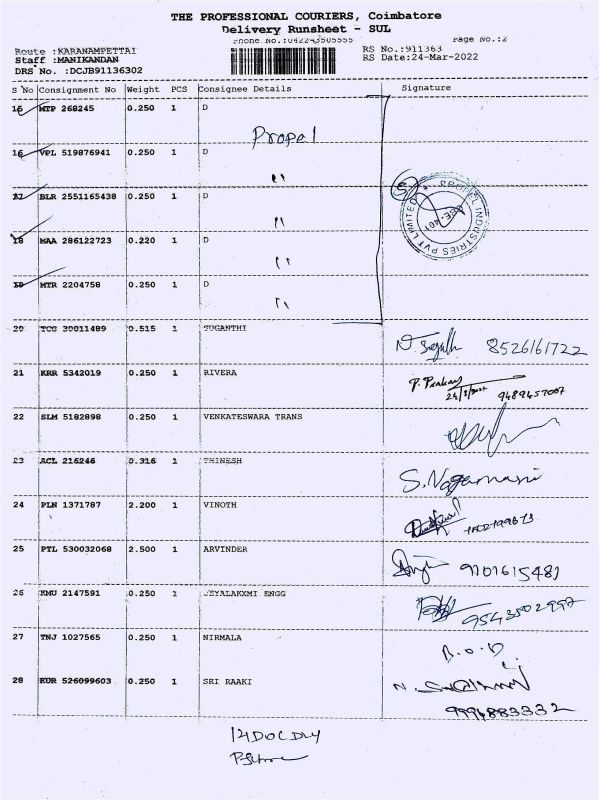 THE PROFESSIONAL COURIERS, Coimbatore
Delivery Runsheet - SUL
Phone No.:04224505555 Page No.:2
Route :KARANAMPETTAI RS No.:911363
Staff :MANIKANDAN RS Date:24-Mar-2022
DRS No. :DCJB91136302
S No Consignment No Weight PCS Consignee Details Signature
15 MTP 268245 0.250 1 D
Propel
16 VPL 519876941 0.250 1 D
"
17 BLR 2551165438 0.250 1 D
"
18 MAA 286122723 0.220 1 D
"
19 MTR 2204758 0.250 1 D
"
PROPEL INDUSTRIES PVT LIMITED
20 TCG 30011489 0.515 1 SUGANTHI
8526161722
21 KRR 5342019 0.250 1 RIVERA
24/3/2022 9489457007
22 SLM 5182898 0.250 1 VENKATESWARA TRANS
23 ACL 216246 0.316 1 THINESH
S. Nagamani
24 PLN 1371787 2.200 1 VINOTH
25 PTL 530032068 2.500 1 ARVINDER
9101615481
26 KMU 2147591 0.250 1 JEYALAKXMI ENGG
9543502997
27 TNJ 1027565 0.250 1 NIRMALA
B.O.D
28 KUR 526099603 0.250 1 SRI RAAKI
9994883332
14 DOC DLY